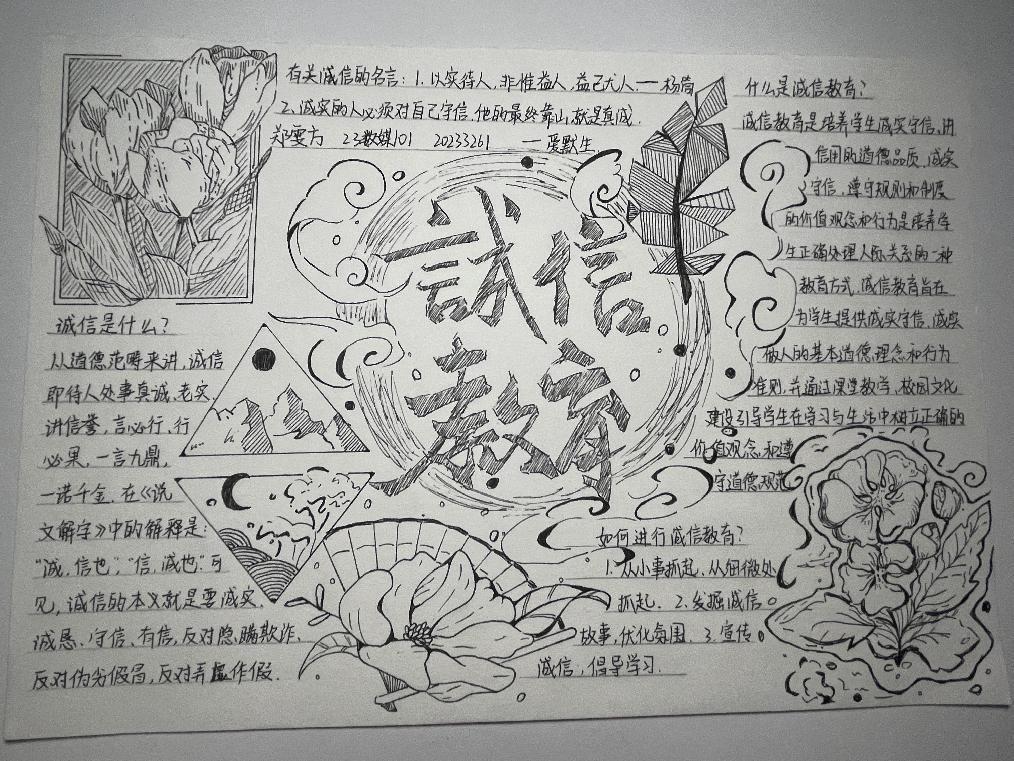 有关诚信的名言：1. 以实待人，非惟益人，益己尤人 — 杨简
2. 诚实的人必须对自己守信，他的最终靠山就是真诚.
郑雯方 23数媒101 20233261 — 爱默生
試信
教育
什么是诚信教育？
诚信教育是培养学生诚实守信、讲
信用的道德品质，诚实
守信、遵守规则和制度
的价值观念和行为是培养学
生正确处理人际关系的一种
教育方式，诚信教育旨在
为学生提供诚实守信、诚实
做人的基本道德理念和行为
准则，并通过课堂教学、校园文化
建设引导学生在学习与生活中树立正确的
价值观念和遵
守道德规范
诚信是什么？
从道德范畴来讲，诚信
即待人处事真诚、老实、
讲信誉，言必行、行
必果，一言九鼎，
一诺千金，在《说
文解字》中的解释是：
“诚，信也”，“信，诚也”可
见，诚信的本义就是要诚实、
诚恳、守信、有信，反对隐瞒欺诈、
反对伪劣假局，反对弄虚作假.
如何进行诚信教育？
1. 从小事抓起、从细微处
抓起. 2. 发掘诚信
故事，优化氛围. 3. 宣传
诚信，倡导学习.